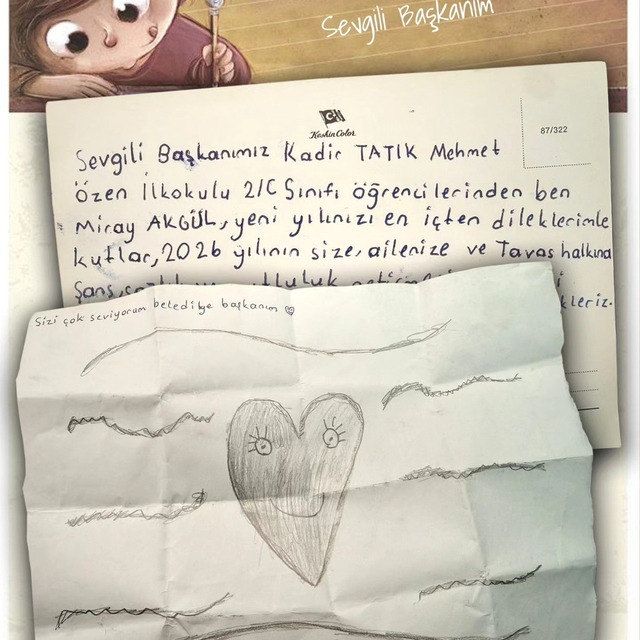 Sevgili Başkanım
KeskinColor
87/322
Sevgili Başkanımız Kadir TATIK Mehmet
Özen İlkokulu 2/C Sınıfı öğrencilerinden ben
Miray AKGÜL, yeni yılınızı en içten dileklerimle
kutlar, 2026 yılının size, ailenize ve Tavas halkına
şans,
Sizi çok seviyorum belediye başkanım